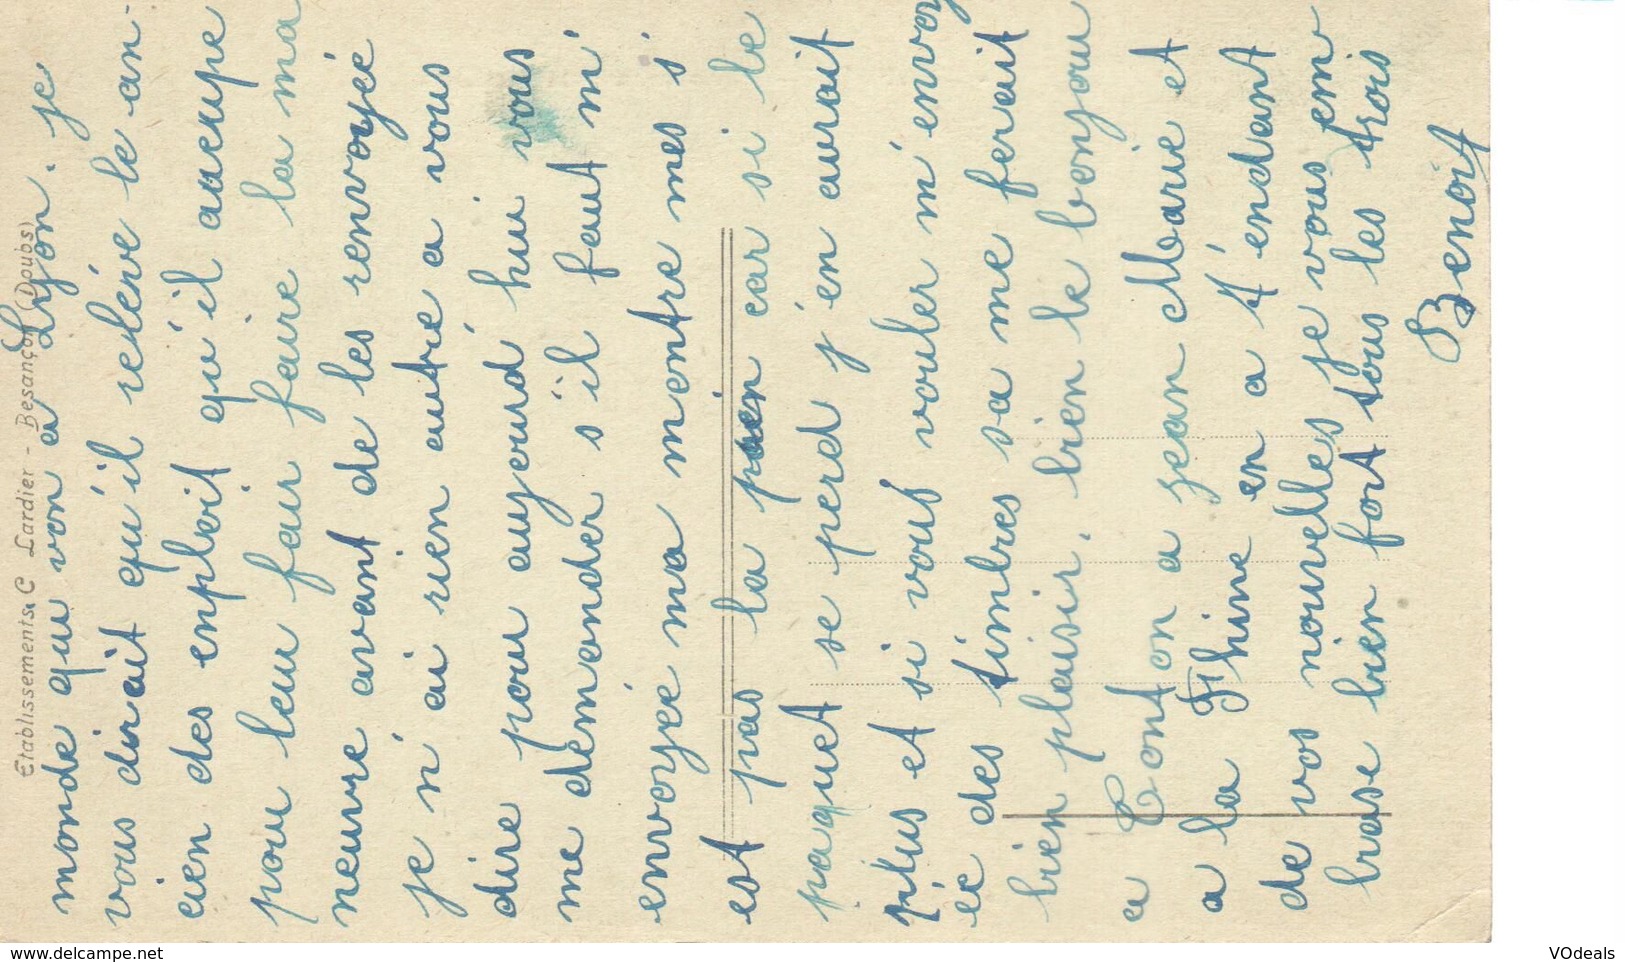 Etablissements C Lardier - Besançon (Doubs)
monde qu'von a Lyon. je
vous dirait qu'il reléve le an-
cien des enploit qu'il aucupe
pou leur fair faire la ma
neuvre avant de les renvoyée
je n'ai rien autre a vous
dire pou aujourd'hui vous
me demander s'il faut m'
envoyée ma montre mes s'
est pas la pien car si le
paquet se perd j'en aurait
plus et si vous vouler m'envoy
ée des timbres sa me ferait
bien plaisir, bien le bonjour
a Tonton a jean Marie et
a la Fhine en a t'endant
de vos nouvelles je vous em
brase bien fort tous les trois
Benoit
www.delcampe.net
VOdeals